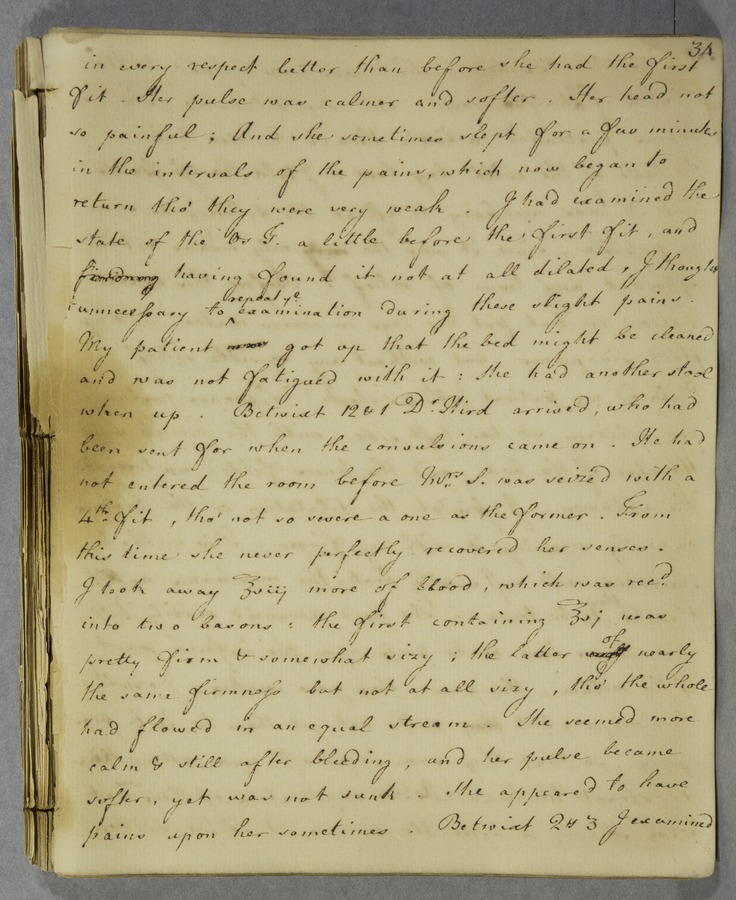 34
in every respect better than before she had the first
fit. Her pulse was calmer and softer. Her head not
so painful; And she sometimes slept for a few minutes
in the intervals of the pains, which now began to
return tho' they were very weak. I had examined the
state of the Os T. a little before the first fit, and
having found it not at all dilated, I thought
unnecessary to repeat ye examination during these slight pains.
My patient got up that the bed might be cleaned
and was not fatigued with it: She had another stool
when up. Betwixt 12 & 1 Dr. Hird arrived, who had
been sent for when the convulsions came on. He had
not entered the room before Mrs. S. was seized with a
4th. fit, tho' not so severe a one as the former. From
this time she never perfectly recovered her senses.
I took away ℥viij more of blood, which was recd.
into two basons: the first containing ℥vj was
pretty firm & somewhat sizy; the latter of nearly
the same firmness but not at all sizy, tho' the whole
had flowed in an equal stream. She seemed more
calm & still after bleeding, and her pulse became
softer, yet was not sunk. She appeared to have
pains upon her sometimes. Betwixt 2 & 3 I examined